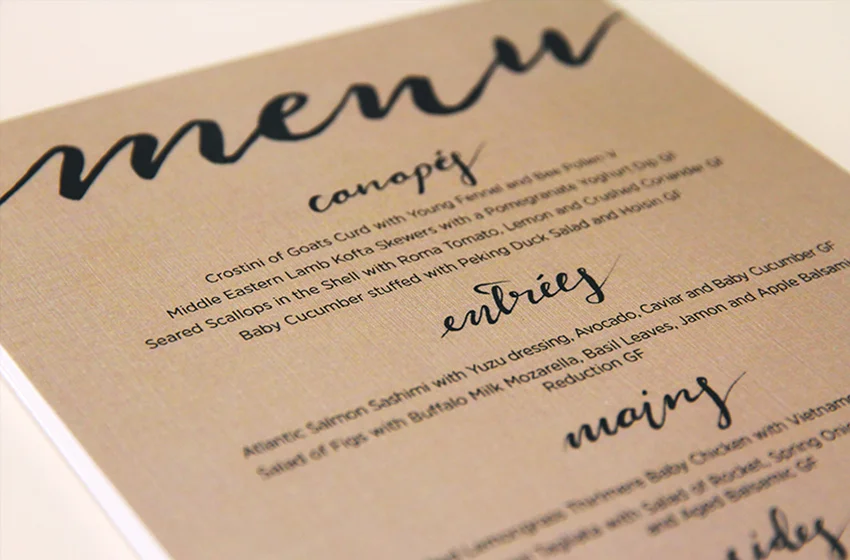 menu
canapés
Crostini of Goats Curd with Young Fennel and Bee Pollen V
Middle Eastern Lamb Kofta Skewers with a Pomegranate Yoghurt Dip GF
Seared Scallops in the Shell with Roma Tomato, Lemon and Crushed Coriander GF
Baby Cucumber stuffed with Peking Duck Salad and Hoisin GF
entrées
Atlantic Salmon Sashimi with Yuzu dressing, Avocado, Caviar and Baby Cucumber GF
Salad of Figs with Buffalo Milk Mozarella, Basil Leaves, Jamon and Apple Balsami
Reduction GF
mains
Lemongrass Baby Chicken with Vietname
Tagliata with Salad of Rocket, Spring Onio
and Aged Balsamic GF